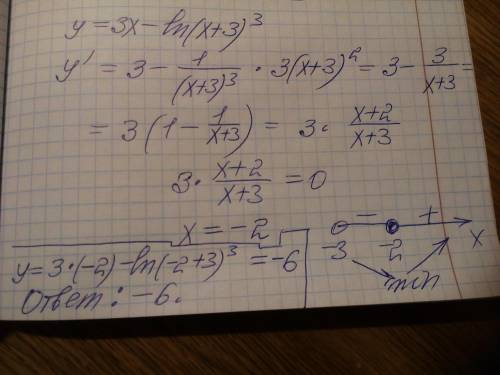 y = 3x - ln(x+3)³
y' = 3 - 1/(x+3)³ · 3(x+3)² = 3 - 3/(x+3) =
= 3(1 - 1/(x+3)) = 3 · (x+2)/(x+3)
3 · (x+2)/(x+3) = 0
x = -2
- +
-3 -2 x
min
y = 3·(-2) - ln(-2+3)³ = -6
Ответ: -6.